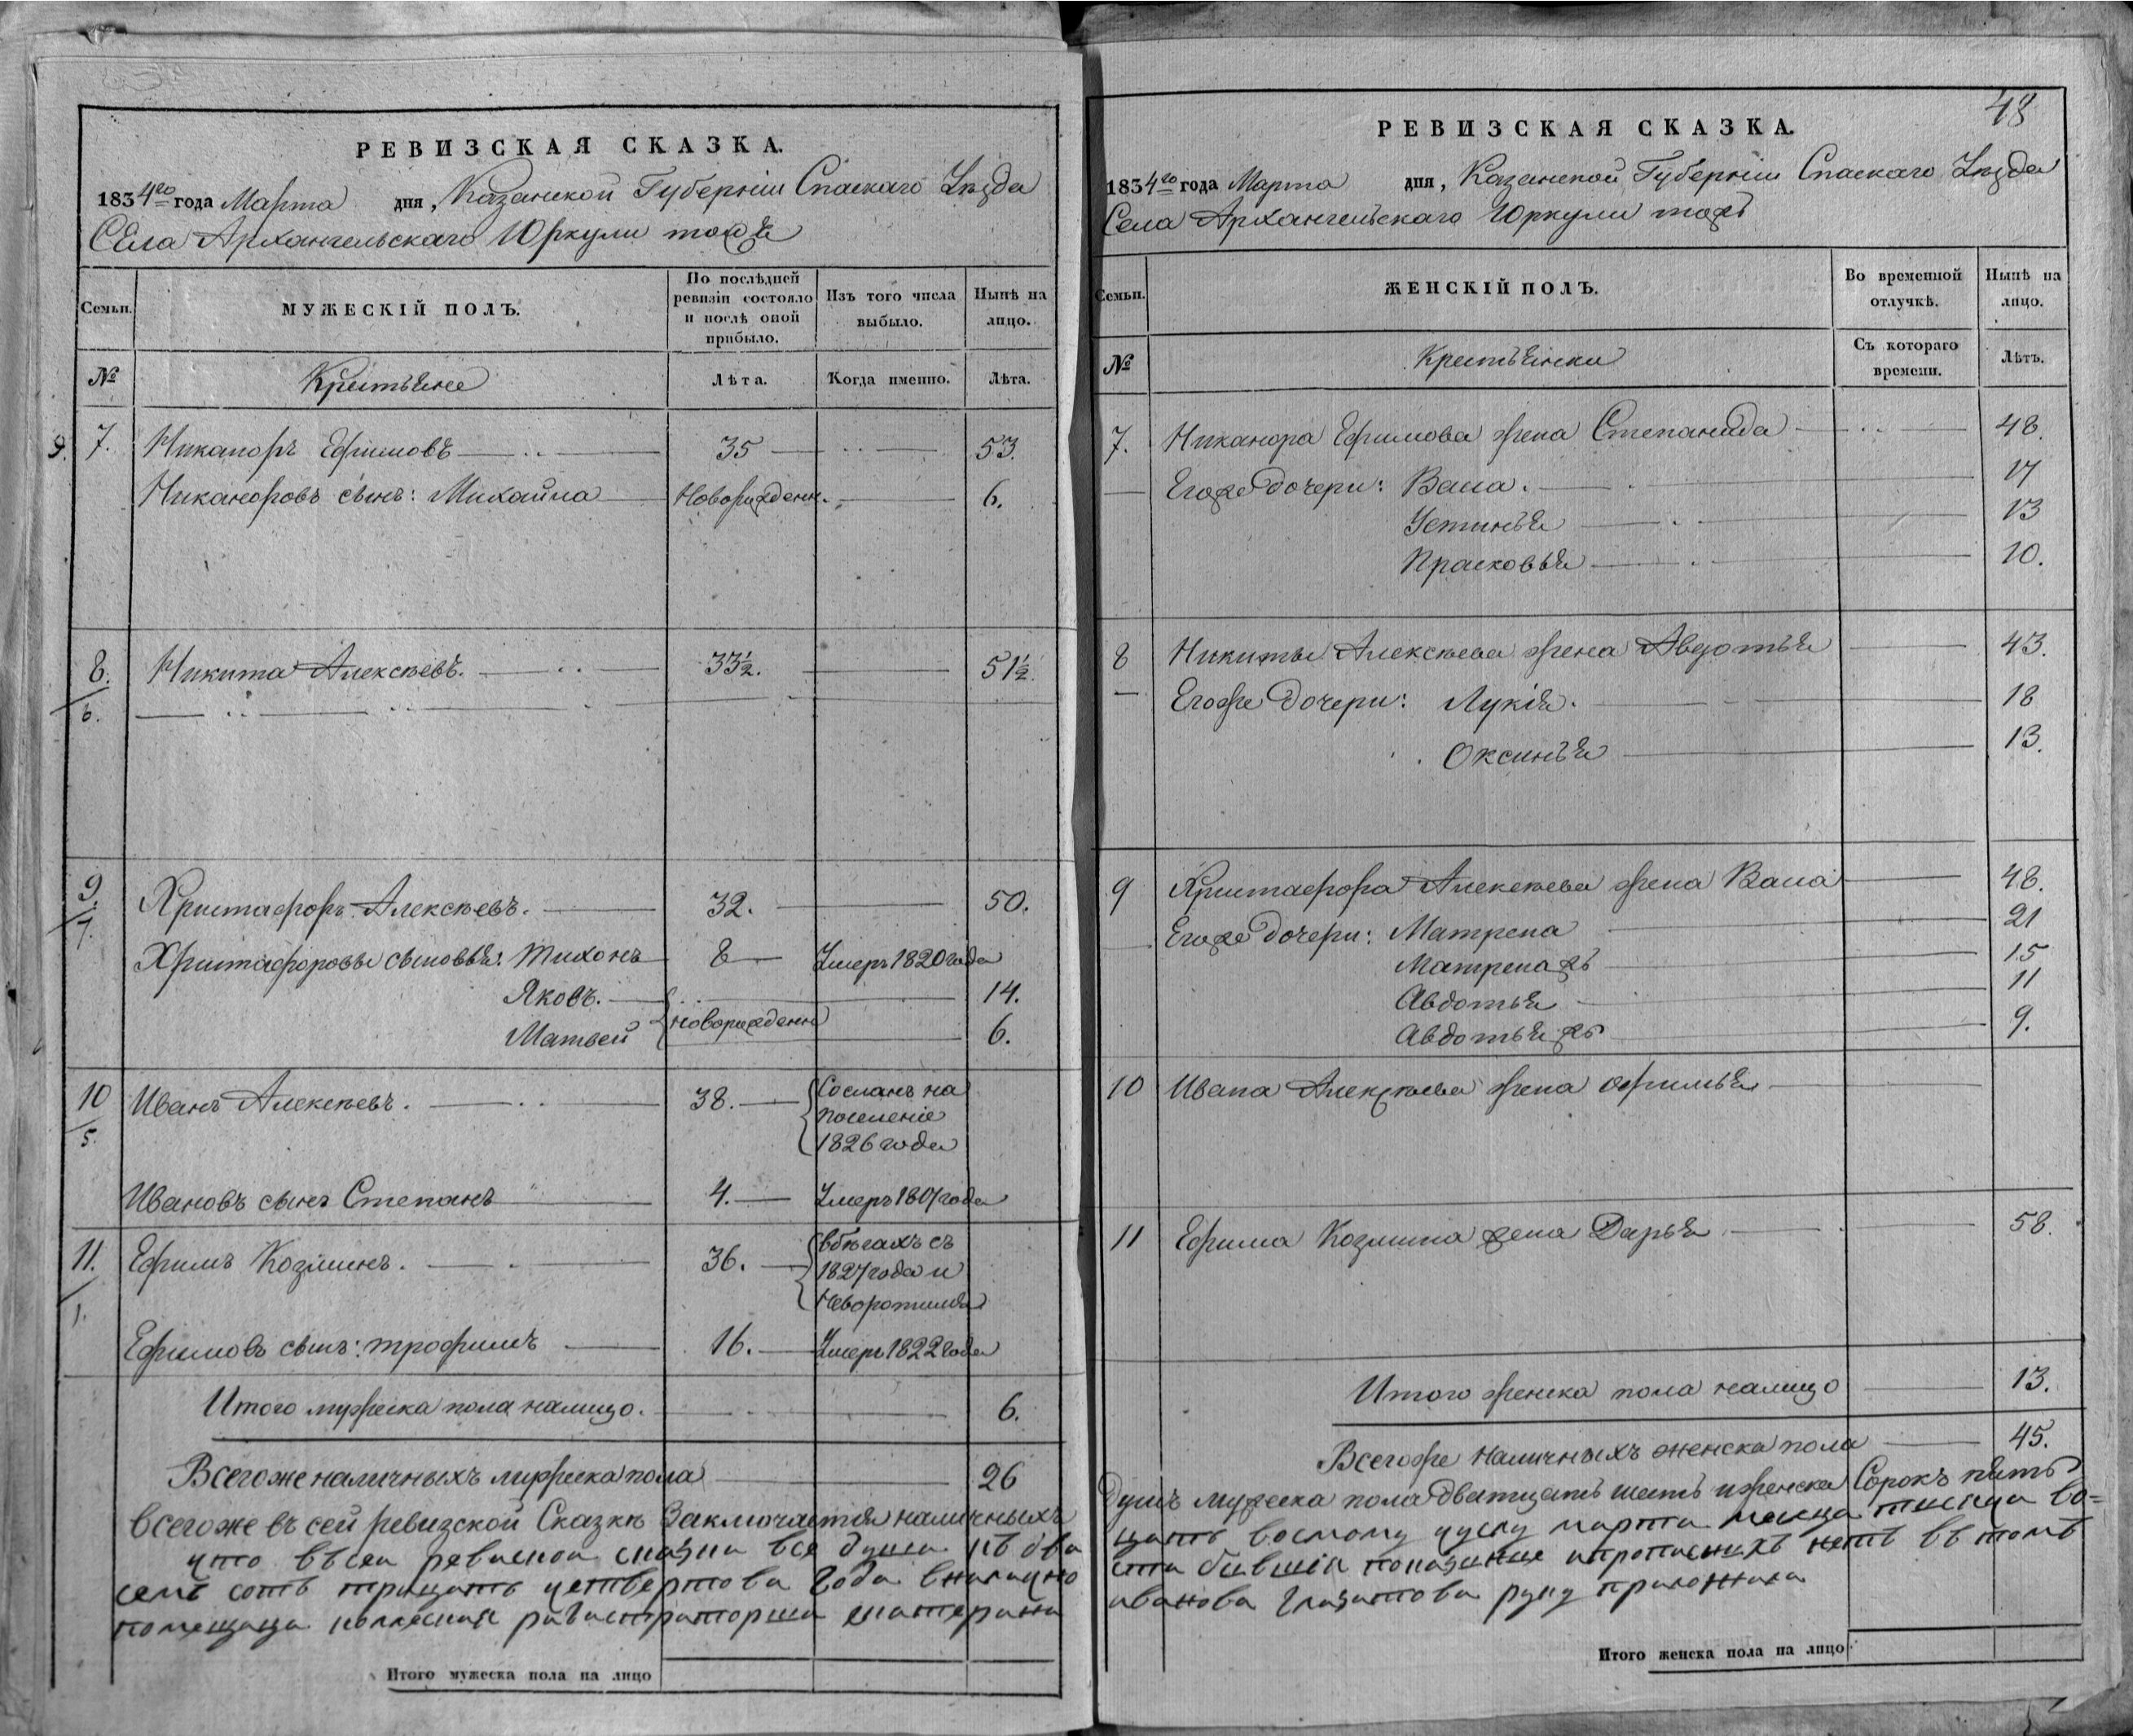 РЕВИЗСКАЯ СКАЗКА.
1834го года Марта дня, Казанской Губерніи Спаскаго Уѣзда
Села Архангельскаго Юркули тожъ
Семьи.
МУЖЕСКІЙ ПОЛЪ.
По послѣдней ревизіи состояло и послѣ оной прибыло.
Изъ того числа выбыло.
Нынѣ на лицо.
№
Крестьяне
Лѣта.
Когда именно.
Лѣта.
9. 7. Никаноръ Ефимовъ 35 53.
Никаноровъ сынъ: Михайла Новорожденъ. 6.
8. Никита Алексѣевъ. 33½. 51½.
6.
9. Христафоръ Алексѣевъ. 32. 50.
7.
Христафоровы сыновья: Тихонъ 8 Умеръ 1820 года
Яковъ. 14.
новорожденн
Матвей 6.
10 Иванъ Алексѣевъ. 38. Сосланъ на
поселеніе
1826 года
5.
Ивановъ сынъ Степанъ 4. Умеръ 1807 года
11. Ефимъ Козминъ. 36. вбѣгахъ съ
1827 года и
неворотился
1.
Ефимовъ сынъ: трофимъ 16. Умеръ 1822 года
Итого мужеска пола налицо. 6.
Всегоже наличныхъ мужеска пола 26
всегоже въ сей ревизской Сказкѣ Заключается наличныхъ
что въсеи ревиской сказки все души
семь сотъ трицать четвертова года
помещица колескай рѣгистраторша катерина
Итого мужеска пола на лицо
48
РЕВИЗСКАЯ СКАЗКА.
1834го года Марта дня, Казанской Губерніи Спаскаго Уѣзда
Села Архангельскаго Юркули тожъ
Семьи.
ЖЕНСКІЙ ПОЛЪ.
Во временной отлучкѣ.
Нынѣ на лицо.
№
Крестьянки
Съ котораго времени.
Лѣтъ.
7. Никанора Ефимова жена Степанида 48.
Егоже дочери: Васа. 17
Устинья 13
Прасковья 10.
8 Никиты Алексѣева жена Авдотья 43.
Егоже дочери: Лукія. 18
Оксинья 13.
9 Христафора Алексѣева жена Васа 48.
Егоже дочери: Матрена 21
Матрена жъ 15
Авдотья 11
Авдотья жъ 9.
10 Ивана Алексѣева жена офимья
11 Ефима Козмина жена Дарья 58.
Итого женска пола налицо 13.
Всегоже наличныхъ женска пола 45.
душъ мужеска пола дватцать шесть иженска Сорокъ пять
восмому числу марта месеца тысяча во=
иванова руку приложила
Итого женска пола на лицо